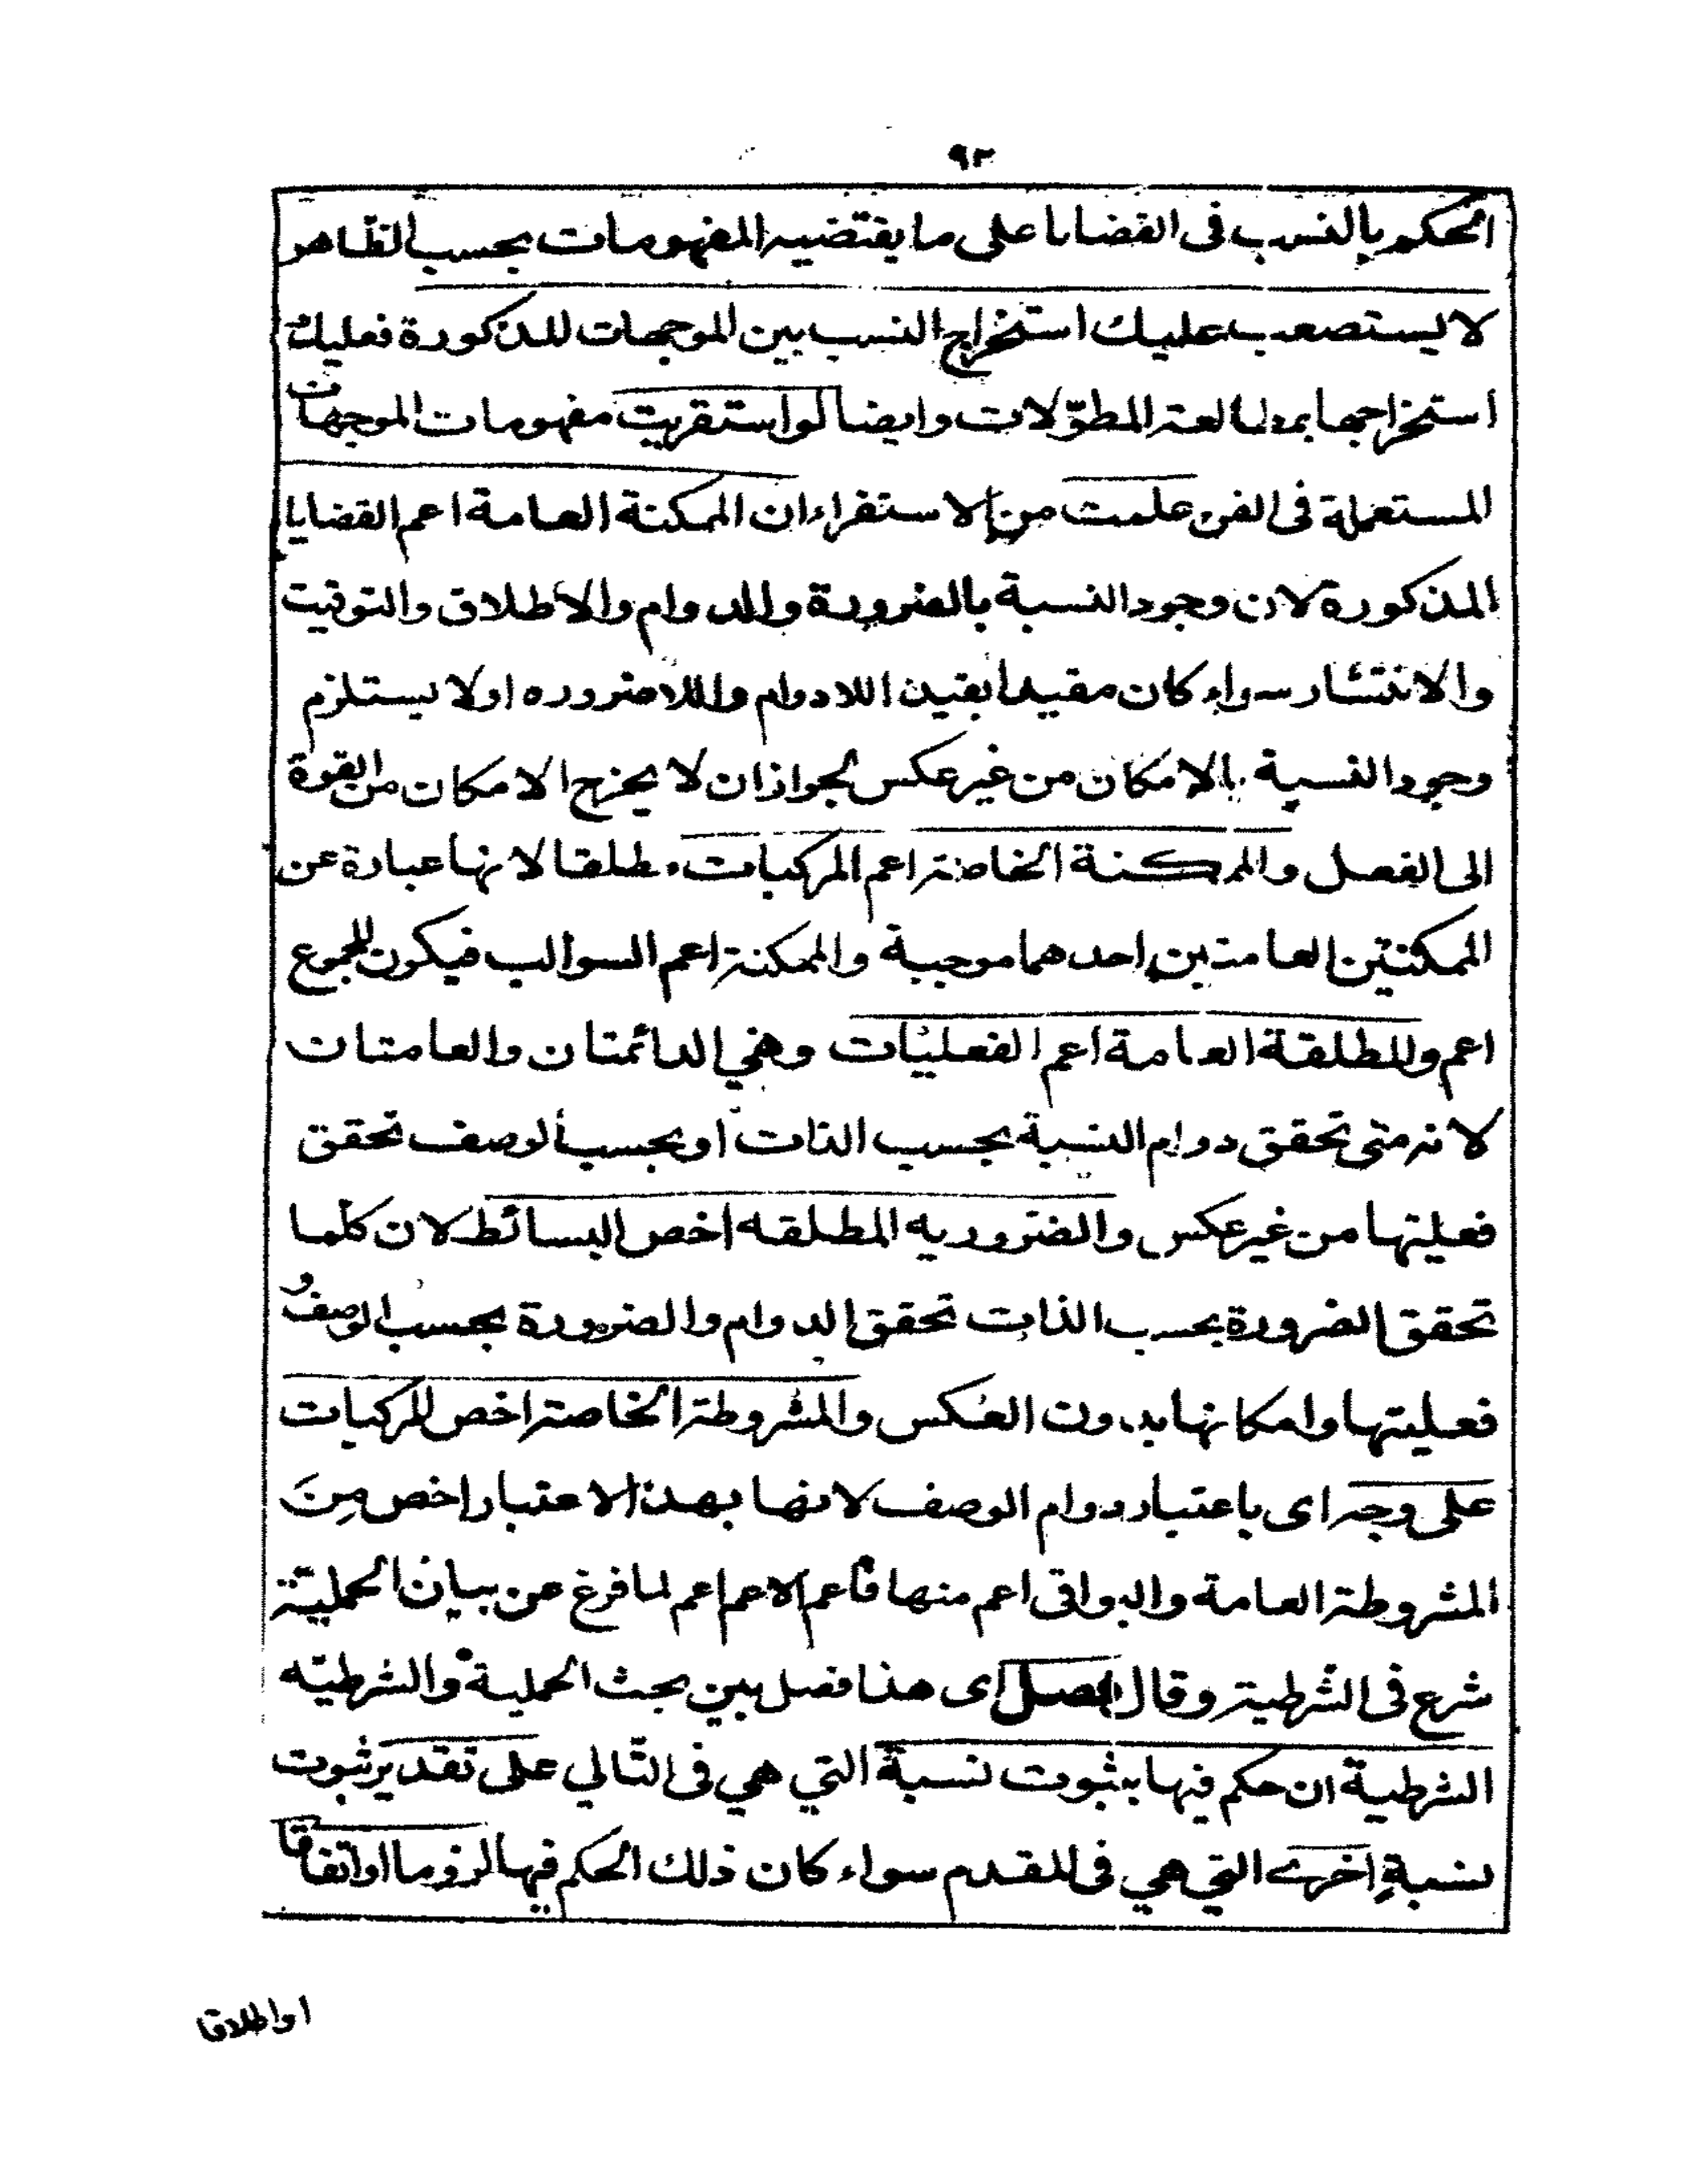 ٩٢
الحكم بالنسب فى القضايا على ما يقتضيه المفهومات بحسب الظاهر
لا يستصعب عليك استخراج النسب بين الموجهات المذكورة فعليك
استخراجها بمطالعة المطوّلات وايضا لو استقريت مفهومات الموجهات
المستعملة فى الفن علمت من الاستقراء ان الممكنة العامة اعم القضايا
المذكورة لان وجود النسبة بالضرورة والدوام والاطلاق والتوقيت
والانتشار سواء كان مقيدا بقيد اللادوام واللاضروره اولا يستلزم
وجود النسبة بالامكان من غير عكس لجواز ان لا يخرج الامكان من القوة
الى الفعل والممكنة الخاصة اعم المركبات مطلقا لانها عبارة عن
الممكنتين العامتين احدهما موجبة والممكنة اعم السوالب فيكون المجموع
اعم والمطلقة العامة اعم الفعليات وهي الدائمتان والعامتان
لانه متى تحقق دوام النسبة بحسب الذات او بحسب الوصف تحقق
فعليتها من غير عكس والضروريه المطلقه اخص البسائط لان كلما
تحقق الضرورة بحسب الذات تحقق الدوام والضرورة بحسب الوصف و
فعليتها وامكانها بدون العكس والمشروطة الخاصة اخص المركبات
على وجه اى باعتبار دوام الوصف لانها بهذا الاعتبار اخص مِنَ
المشروطة العامة والبواقى اعم منها فاعم الاعم اعم لما فرغ عن بيان الحمليّة
شرع فى الشرطية وقال فصل اى هذا فصل بين بحث الحملية والشرطيّه
الشرطية ان حكم فيها بثبوت نسبة التي هي فى التّالي على تقدير ثبوت
نسبةٍ اخرے التي هي فى المقدم سواء كان ذلك الحكم فيها لزوما او اتفاقا
او اطلاقا